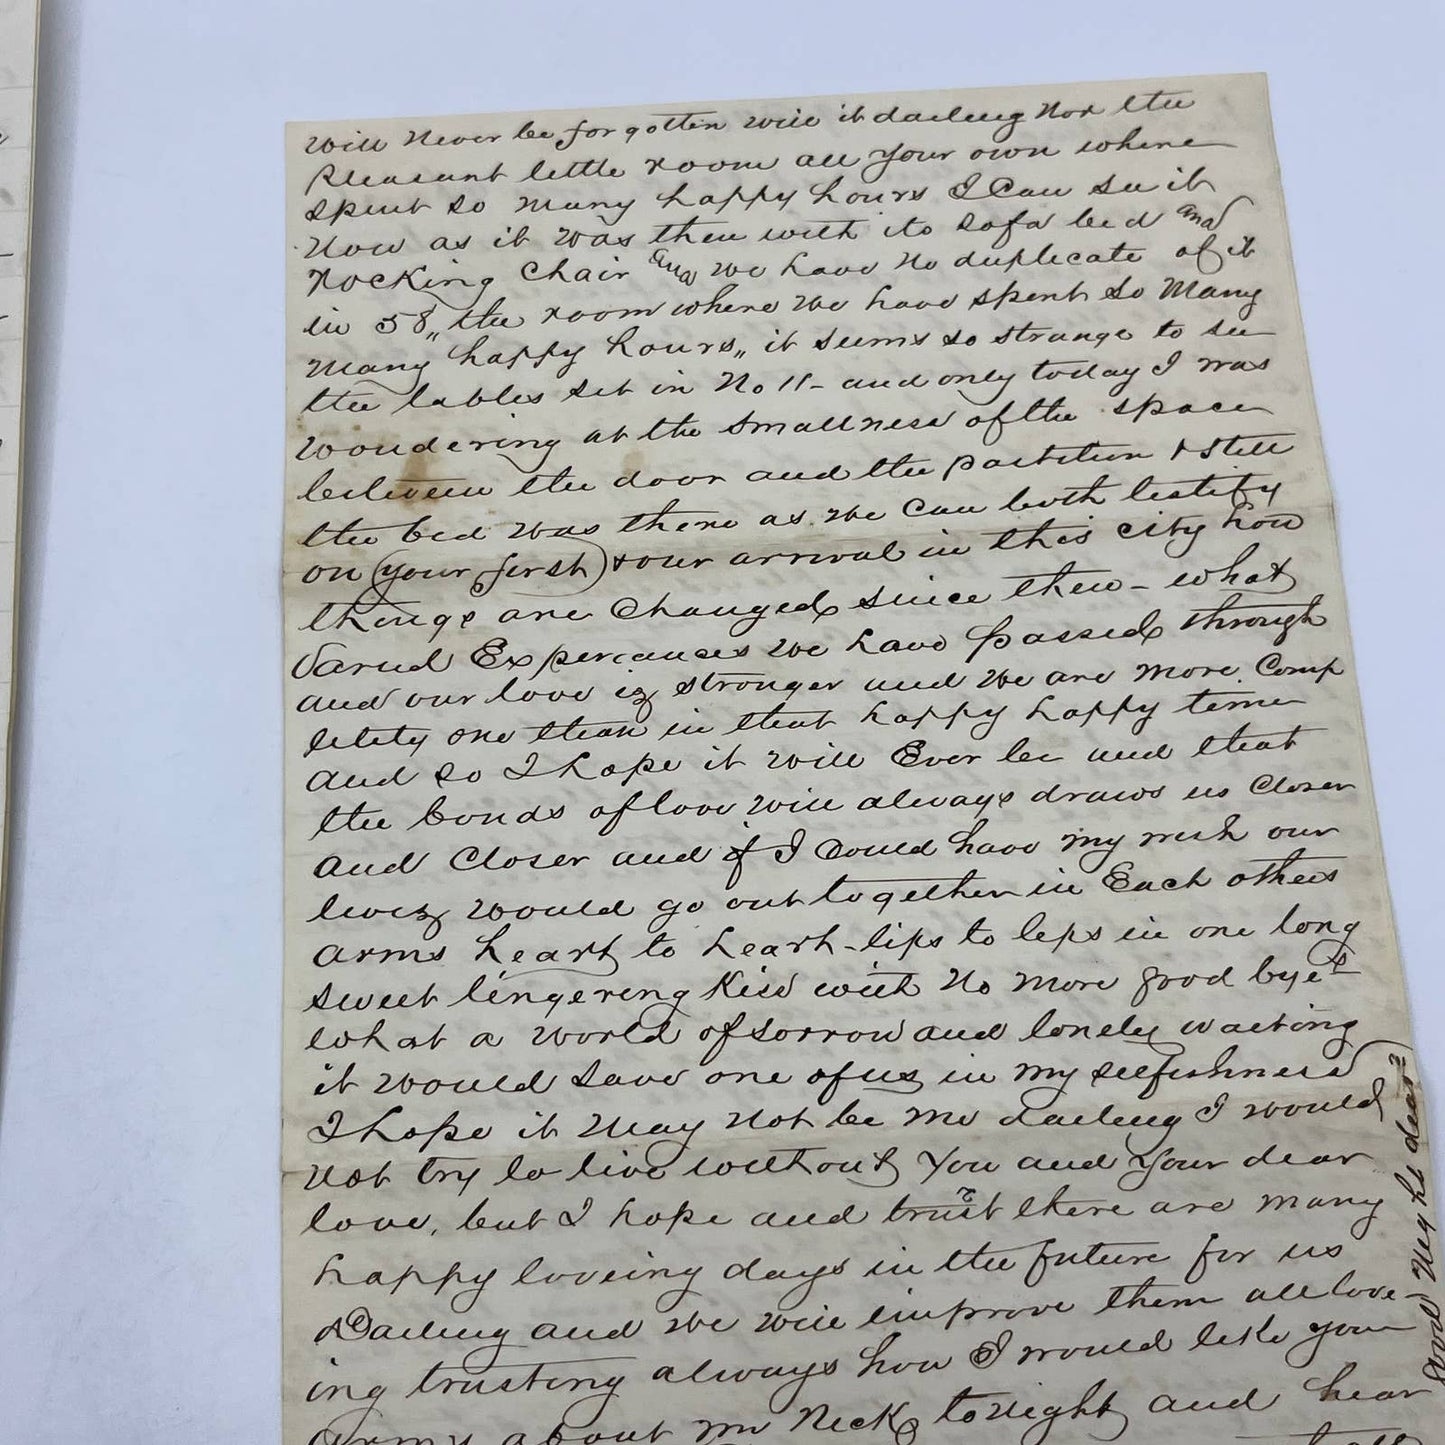 will never be forgotten will it darling nor the
Pleasant little room all your own where
spent so many happy hours I Can see it
now as it was then with its sofa bed and
rocking Chair and we have no duplicate of it
in 58,, the room where we have spent so many
many happy hours,, it seems so strange to see
the tables set in No 11- and only today I was
wondering at the smallness of the space
between the door and the partition & still
the bed was there as we can both testify
on (your first) & our arrival in this city how
things are Changed since then - what
varied Experiances we have passed through
and our love is stronger and we are more Comp
letely one than in that happy happy time
and so I hope it will Ever be and that
the bonds of love will always draws us Closer
and Closer and if I Could have my wish our
lives would go out together in Each others
arms heart to heart - lips to lips in one long
sweet lingering Kiss with no more good bye's
what a world of sorrow and lonely waiting
it would save one of us in my selfishness
I hope it may not be me darling I would
not try to live without You and Your dear
love, but I hope and trust there are many
happy loveing days in the future for us
Darling and we will improve them all love-
ing trusting always how I would like your
arms about my Neck tonight and hear
Good Night dear